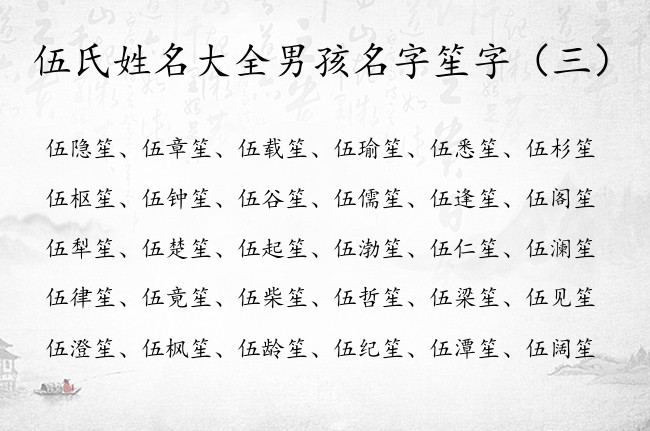 伍氏姓名大全男孩名字笙字（三）
伍隐笙、伍章笙、伍载笙、伍瑜笙、伍悉笙、伍杉笙
伍枢笙、伍钟笙、伍谷笙、伍儒笙、伍逢笙、伍阁笙
伍犁笙、伍楚笙、伍起笙、伍渤笙、伍仁笙、伍澜笙
伍律笙、伍竟笙、伍柴笙、伍哲笙、伍梁笙、伍见笙
伍澄笙、伍枫笙、伍龄笙、伍纪笙、伍潭笙、伍阔笙